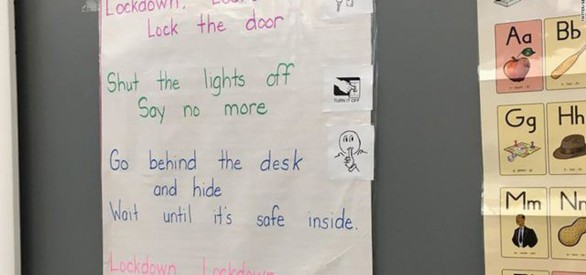 Lockdown,
Lock the door
Shut the lights off
Say no more
TURN IT OFF
Go behind the desk
and hide
Wait until it's safe inside.
Lockdown Lockdown
Aa
Bb
Gg
Hh
Mm
Nn